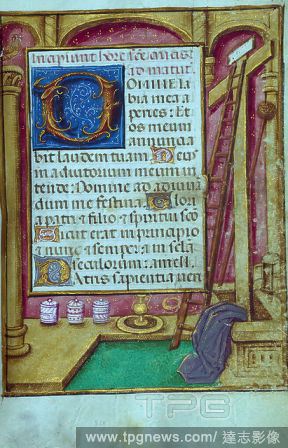 Incipiunt hore scē crucis
ad matut
OMINE la
bia mea a
peries : Et
os meum
annuncia
bit laudem tuam Deus
in adiutorium meum in
tende : Domine ad adiuuā
dum me festina Glori
a patri & filio & spiritui scō
Sicut erat in principio
& nunc & semper : & in
secula seculorum : amen.
Patris sapientia veri
TPG
www.tpgnews.com / 達志影像